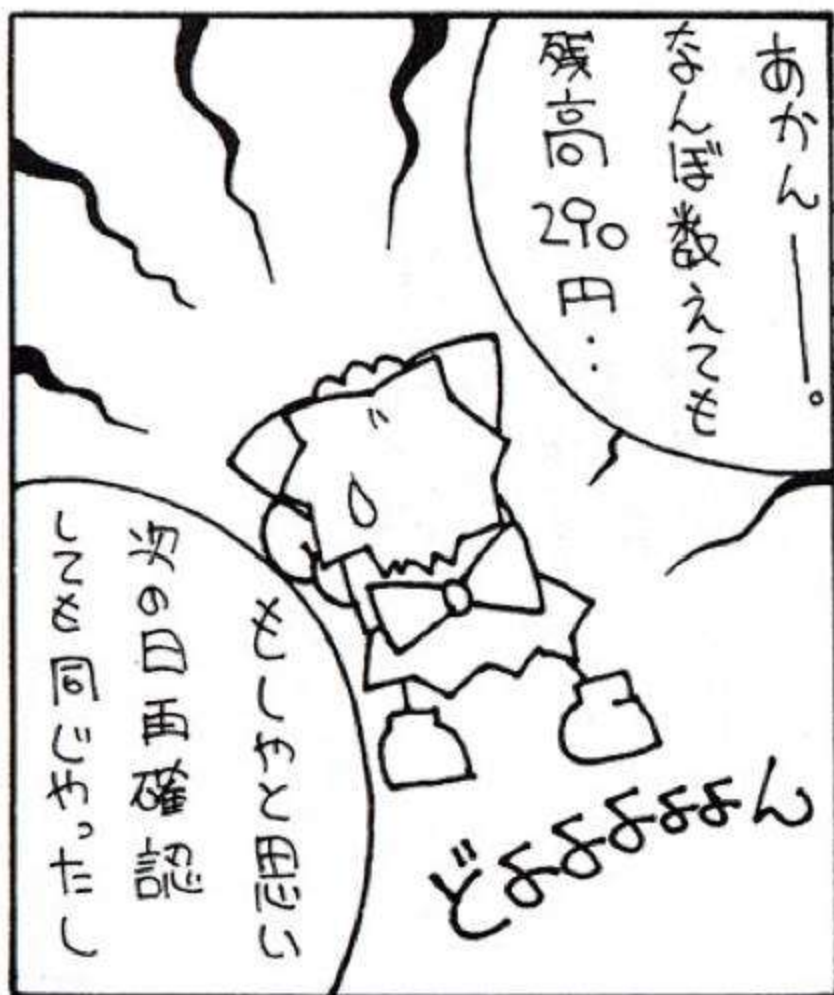 あかん――。
なんぼ数えても
残高290円..
もしやと思い
次の日再確認
しても同じやったし
どよよよよよん